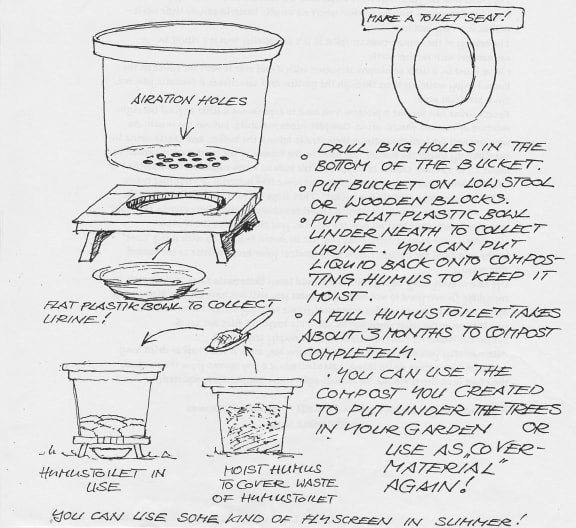 MAKE A TOILET SEAT!
AIRATION HOLES
DRILL BIG HOLES IN THE
BOTTOM OF THE BUCKET.
PUT BUCKET ON LOW STOOL
OR WOODEN BLOCKS.
PUT FLAT PLASTIC BOWL
UNDER NEATH TO COLLECT
URINE. YOU CAN PUT
LIQUID BACK ONTO COMPOS-
TING HUMUS TO KEEP IT
MOIST.
FLAT PLASTIK BOWL TO COLLECT
URINE!
A FULL HUMUSTOILET TAKES
ABOUT 3 MONTHS TO COMPOST
COMPLETELY.
. YOU CAN USE THE
COMPOST YOU CREATED
TO PUT UNDER THE TREES
IN YOUR GARDEN OR
USE AS „COVER-
MATERIAL"
AGAIN!
HUMUSTOILET IN
USE
MOIST HUMUS
TO COVER WASTE
OF HUMUSTOILET
YOU CAN USE SOME KIND OF FLYSCREEN IN SUMMER!